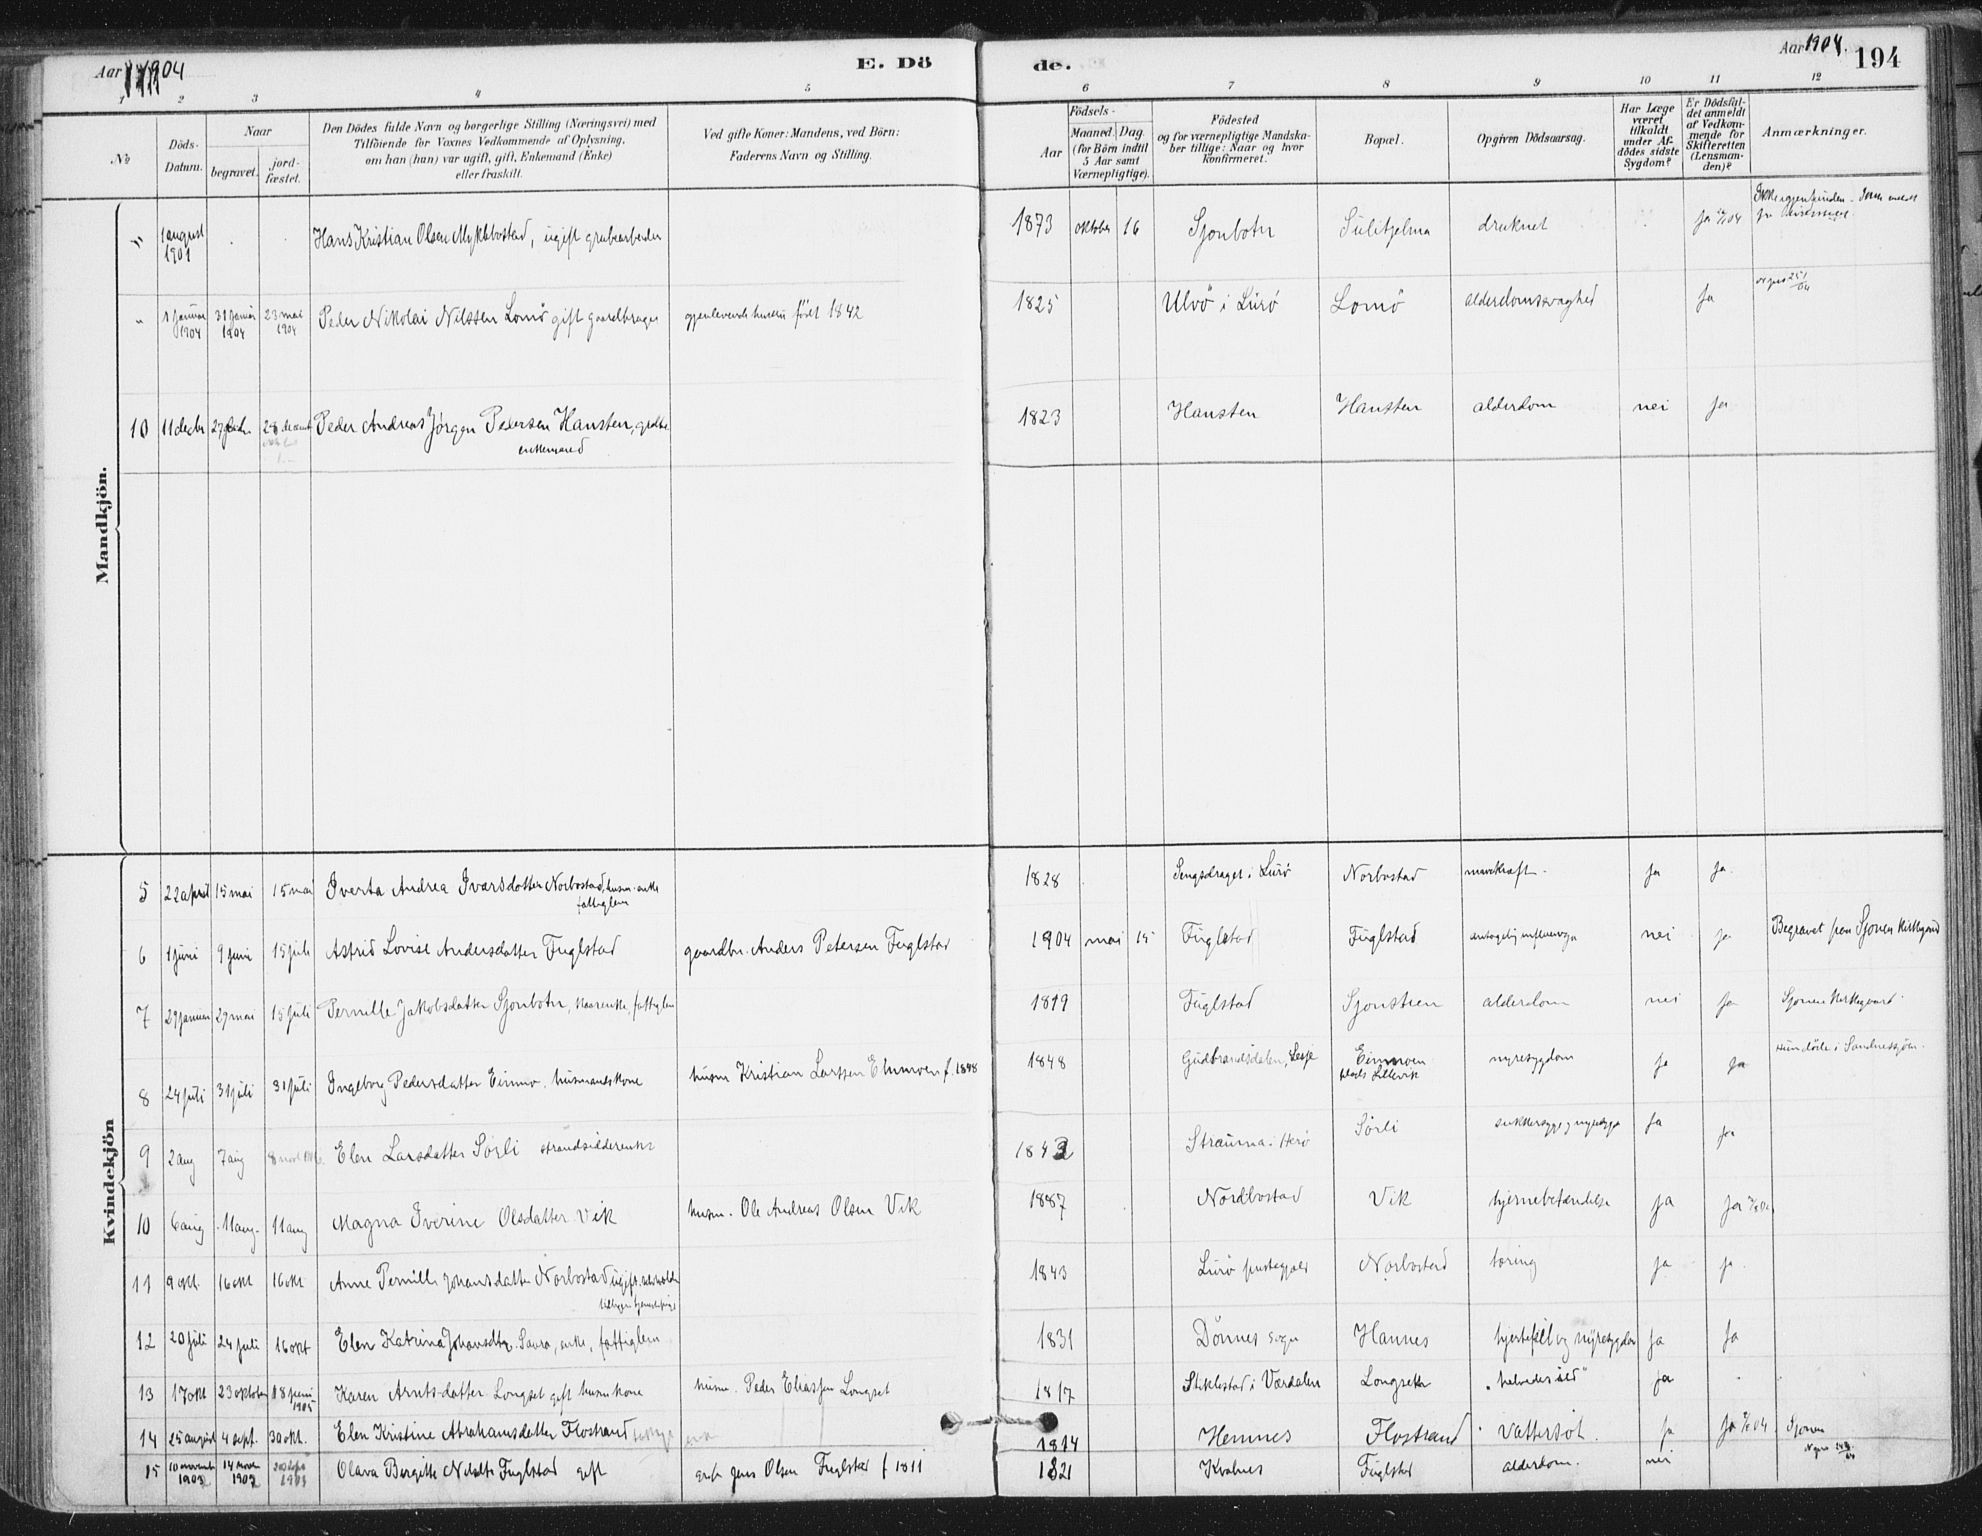 Aar 1904
E. Dö
de.
Aar 1904.
194
1 2 3 4 5 6 7 8 9 10 11 12
№
Döds-Datum.
Naar
begravet.
jord-fæstet.
Den Dödes fulde Navn og borgerlige Stilling (Næringsvei) med
Tilföiende for Voxnes Vedkommende af Oplysning,
om han (hun) var ugift, gift, Enkemand (Enke)
eller fraskilt.
Ved gifte Koner: Mandens, ved Börn:
Faderens Navn og Stilling.
Födsels-
Aar
Maaned. Dag.
(for Börn indtil
5 Aar samt
Værnepligtige).
Födested
og for værnepligtige Mandska-
ber tillige: Naar og hvor
konfirmeret.
Bopæl.
Opgiven Dödsaarsag.
Har Læge
været
tilkaldt
under Af-
dödes sidste
Sygdom?
Er Dödsfal-
det anmeldt
af Vedkom-
mende for
Skifteretten
(Lensman-
den)?
Anmærkninger.
Mandkjön.
" 1 august 1901 Hans Kristian Olsen Myklebostad, ugift grubearbeider 1873 oktober 16 Sjonbotn Sulitjelma druknet ja
" 1 januar 1904 31 januar 1904 23 mai 1904 Peder Nikolai Nilssen Lomö gift gaardbruger gjenlevende hustru födt 1842 1825 Ulvö i Lurö Lomö alderdomssvaghed Ja
10 11 decbr 27 decbr 28 Peder Andreas Jørgen Pedersen Hansten, enkemand 1823 Hansten Hansten alderdom nei ja
Kvindekjön
5 22 april 15 mai 15 mai Iverta Andrea Ivarsdatter Norbostad, husm. enke fattiglem 1828 i Lurö Norbostad mavekræft. ja ja
6 1 juni 9 juni 15 juli Astrid Lovise Andersdatter Fuglstad gaardbr. Anders Petersen Fuglstad 1904 mai 15 Fuglstad Fuglstad nei ja Begravet paa Sjonen Kirkegaard
7 29 januar 29 mai 15 juli Pernille Jakobsdatter Sjonbotn, fattiglem 1819 Fuglstad Sjonstien alderdom nei ja Sjonens Kirkegaard.
8 24 juli 31 juli 31 juli Ingeborg Pedersdatter Eimmo. husmandskone husm Kristian Larssen Elnmoen f. 1848 1848 Gudbrandsdalen, Lesje Eimmoen plads Lillevik nyresygdom ja ja Hun döde i Sandnessjöen.
9 2 aug 7 aug 8 Elen Larsdatter Sörli strandsidderenke 1843 Strauma i Herö Sörli sukkersyge og nyresyge ja ja
10 6 aug 11 aug. 11 aug Magna Iverine Olsdatter Vik husm. Ole Andreas Olsen Vik 1887 Nordbostad Vik hjernebetændelse ja ja
11 9 okt. 16 okt 16 okt Anne Pernille Johansdatter Norbostad ugift. 1843 Lurö prestegjæld Norbostad tæring ja ja
12 20 juli 24 juli 16 okt Elen Katrina Johansdtr. Saura, enke, fattiglem 1831 Dönnes sogn Hannes hjertefeil og nyresygdom ja ja
13 17 okt 23 oktober 18 juni 1905 Karen Arnts-datter Longset gift husm kone husm. Peder Eliassen Longset 1817 Stiklestad i Værdalen Longseter "helvedesild" ja
14 25 august 4 sept. 30 okt. Elen Kristine Abrahamsdatter Flostrand 1814 Hemnes Flostrand Vattersot. ja ja Sjonen
15 10 november 1902 14 nov 1902 Olava Bergitte Nilsdtr Fuglstad gift Jens Olsen Fuglstad f 1811 1821 Kvalnes Fuglstad alderdom. nei